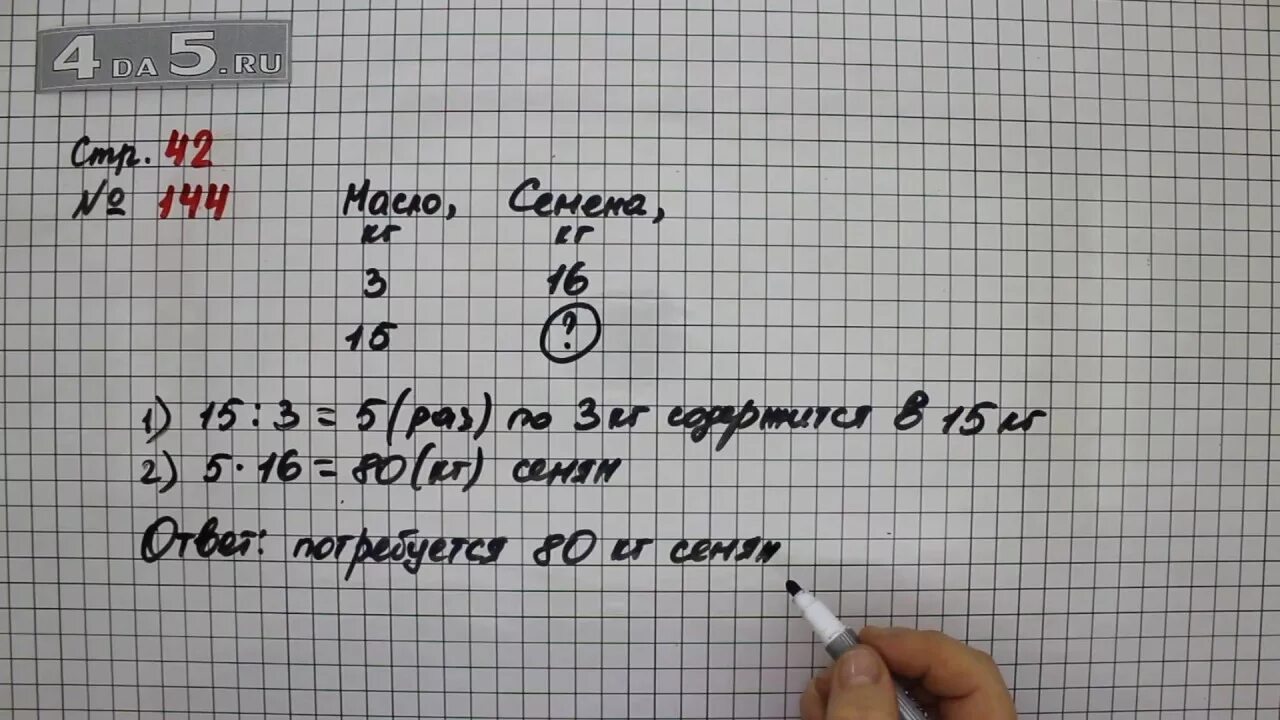 4DA5.RU
Стр. 42
№ 144
Масло, Семена,
кг кг
3 16
15 ?
1) 15 : 3 = 5 (раз) по 3 кг содержится в 15 кг
2) 5 · 16 = 80 (кг) семян
Ответ: потребуется 80 кг семян